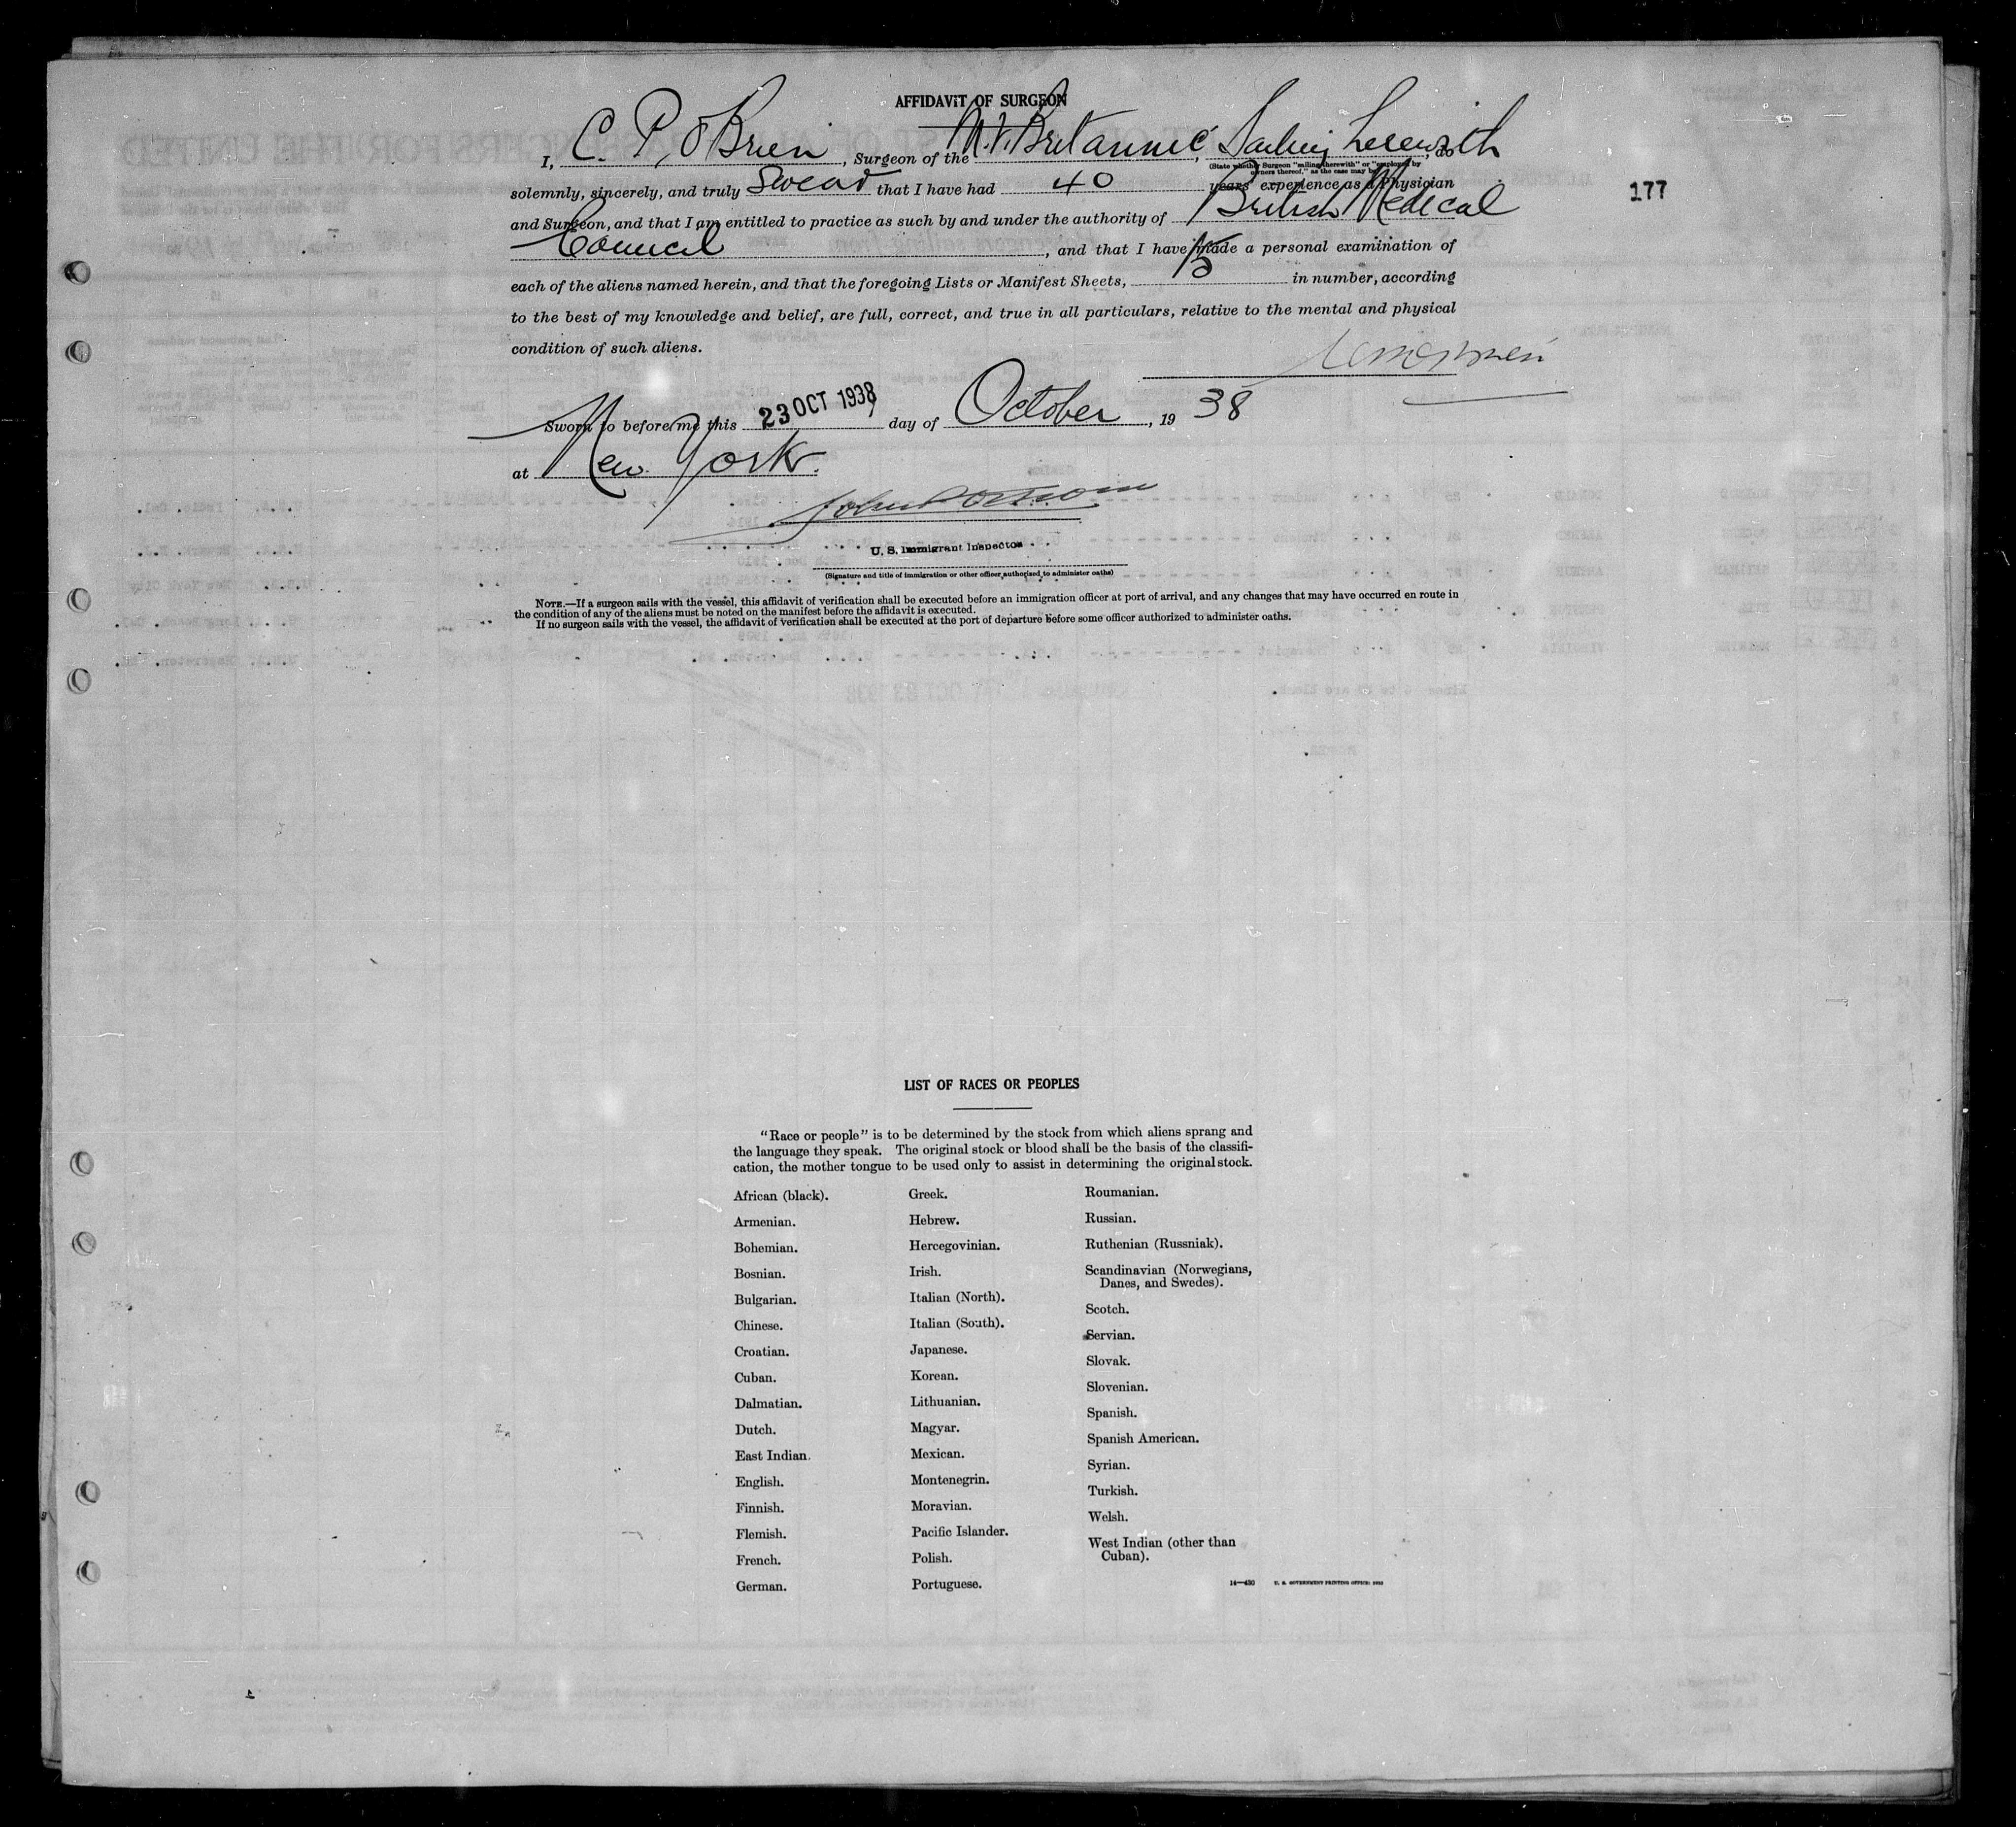 AFFIDAVIT OF SURGEON
I, C. P. O'Brien, Surgeon of the M.V. Britannic, Sailing herewith, do
(State whether Surgeon "sailing therewith" or "employed by owners thereof," as the case may be)
solemnly, sincerely, and truly Swear that I have had 40 years' experience as a Physician
177
and Surgeon, and that I am entitled to practice as such by and under the authority of British Medical
Council, and that I have made a personal examination of
each of the aliens named herein, and that the foregoing Lists or Manifest Sheets, 15 in number, according
to the best of my knowledge and belief, are full, correct, and true in all particulars, relative to the mental and physical
condition of such aliens.
Sworn to before me this 23 OCT 1938 day of October, 19 38
at New York.
U. S. Immigrant Inspector
(Signature and title of immigration or other officer authorized to administer oaths)
NOTE.—If a surgeon sails with the vessel, this affidavit of verification shall be executed before an immigration officer at port of arrival, and any changes that may have occurred en route in
the condition of any of the aliens must be noted on the manifest before the affidavit is executed.
If no surgeon sails with the vessel, the affidavit of verification shall be executed at the port of departure before some officer authorized to administer oaths.
LIST OF RACES OR PEOPLES
"Race or people" is to be determined by the stock from which aliens sprang and
the language they speak. The original stock or blood shall be the basis of the classifi-
cation, the mother tongue to be used only to assist in determining the original stock.
African (black).
Armenian.
Bohemian.
Bosnian.
Bulgarian.
Chinese.
Croatian.
Cuban.
Dalmatian.
Dutch.
East Indian.
English.
Finnish.
Flemish.
French.
German.
Greek.
Hebrew.
Hercegovinian.
Irish.
Italian (North).
Italian (South).
Japanese.
Korean.
Lithuanian.
Magyar.
Mexican.
Montenegrin.
Moravian.
Pacific Islander.
Polish.
Portuguese.
Roumanian.
Russian.
Ruthenian (Russniak).
Scandinavian (Norwegians,
Danes, and Swedes).
Scotch.
Servian.
Slovak.
Slovenian.
Spanish.
Spanish American.
Syrian.
Turkish.
Welsh.
West Indian (other than
Cuban).
14—430 U. S. GOVERNMENT PRINTING OFFICE: